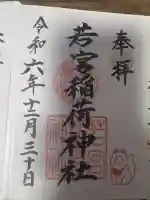 奉拝
若宮稲荷神社
令和六年十二月三十日